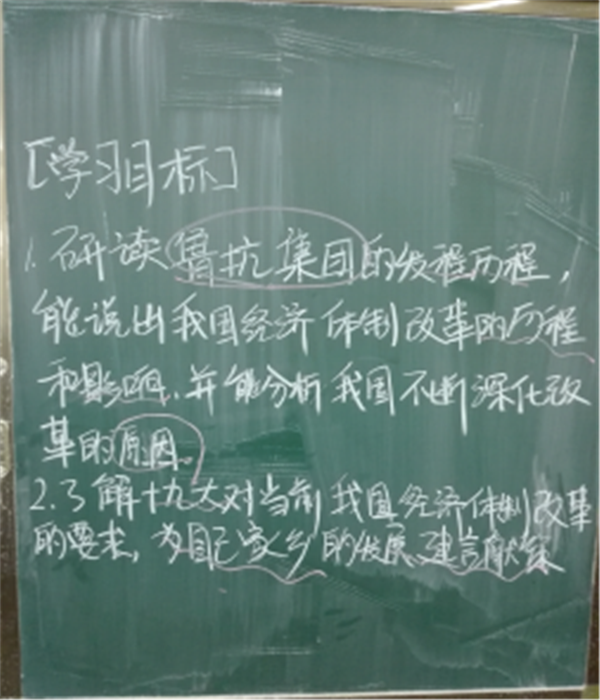 [学习目标]
1. 研读鲁抗集团的发程历程,
能说出我国经济体制改革的历程
和影响,并能分析我国不断深化改
革的原因。
2.了解十九大对当前我国经济体制改革
的要求,为自己家乡的发展建言献策